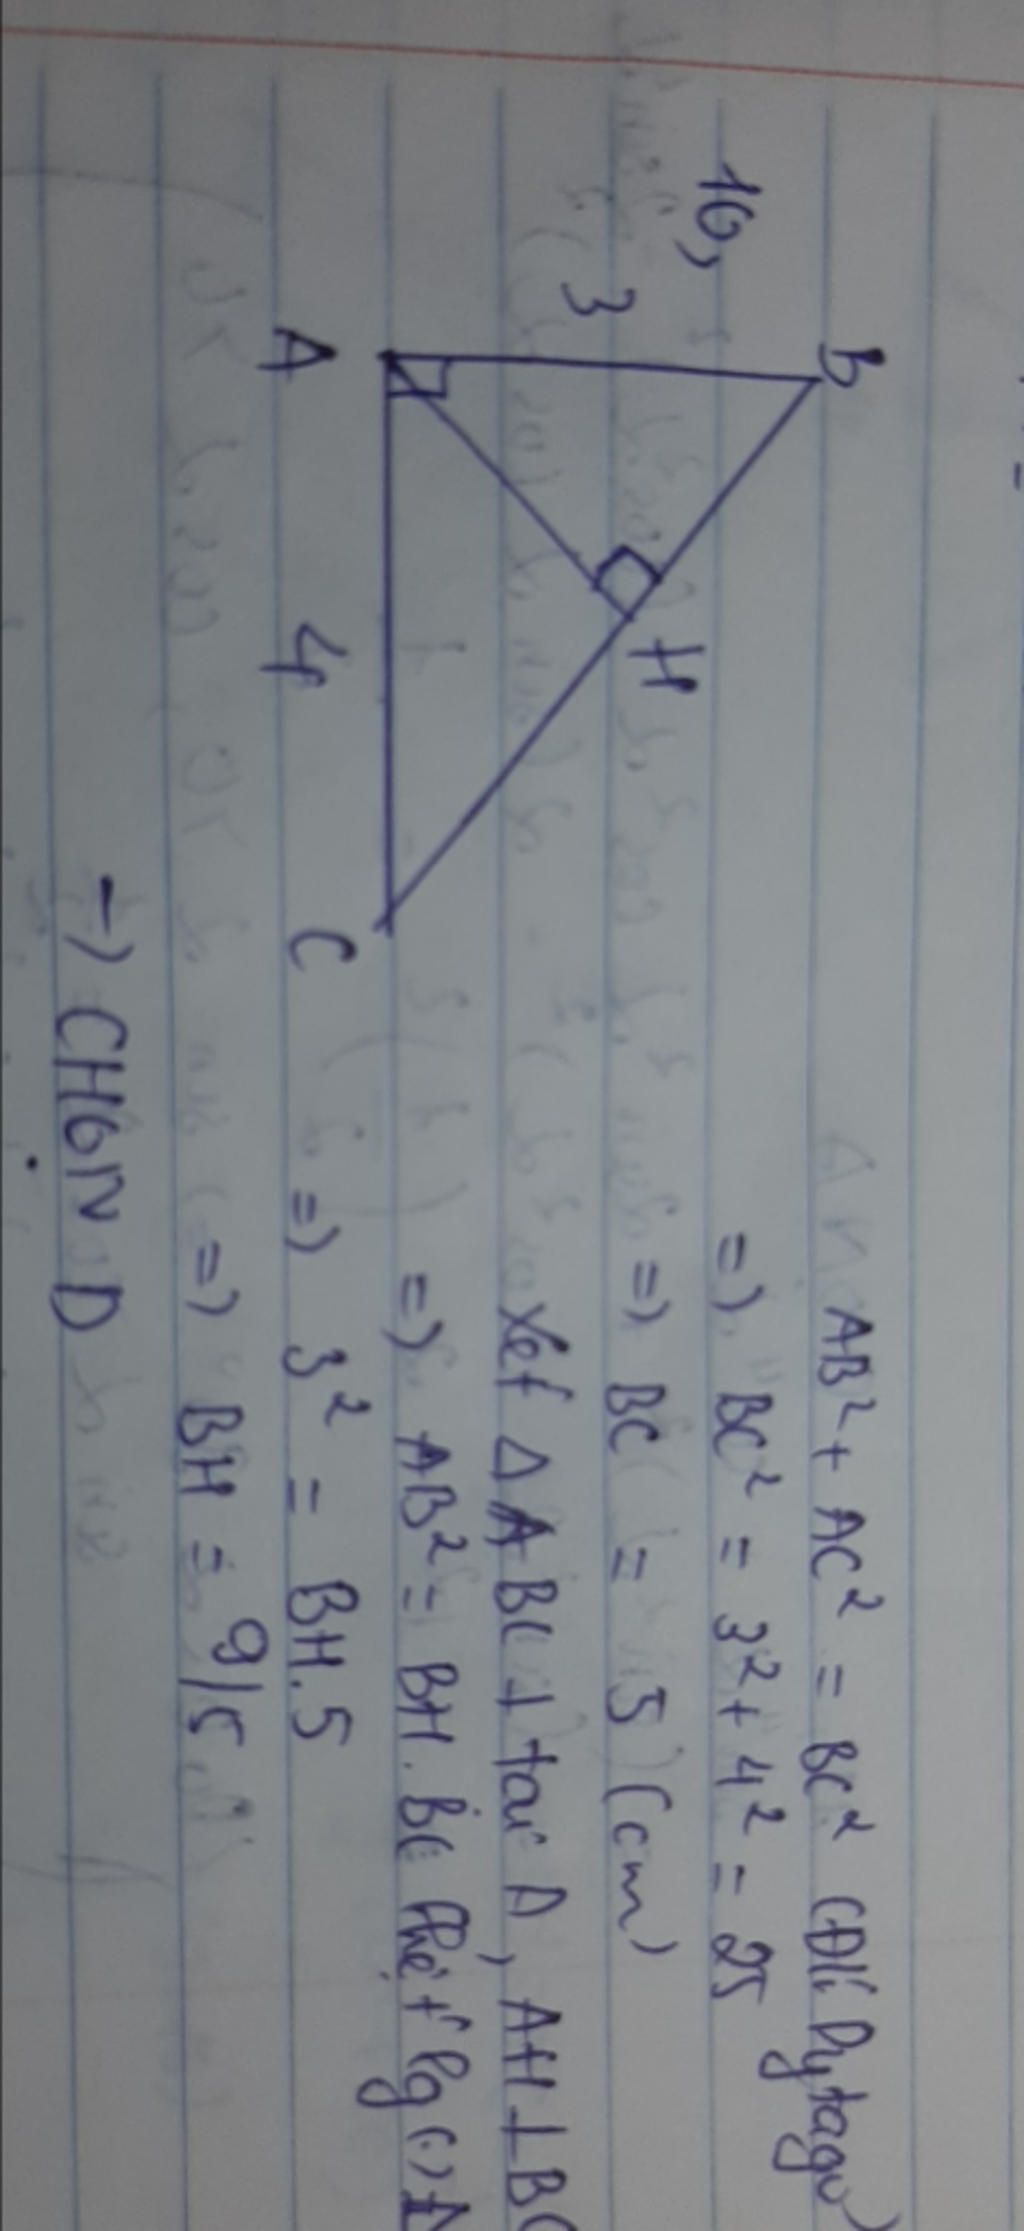 10,
B
3
H
A
4
C
AB² + AC² = BC² (Đlí Pytago)
=) BC² = 3² + 4² = 25
=) BC = 5 (cm)
Xét Δ ABC ⊥ tại A, AH ⊥ BC
=) AB² = BH.BC
=) 3² = BH.5
=) BH = 9/5
-) CHỌN D